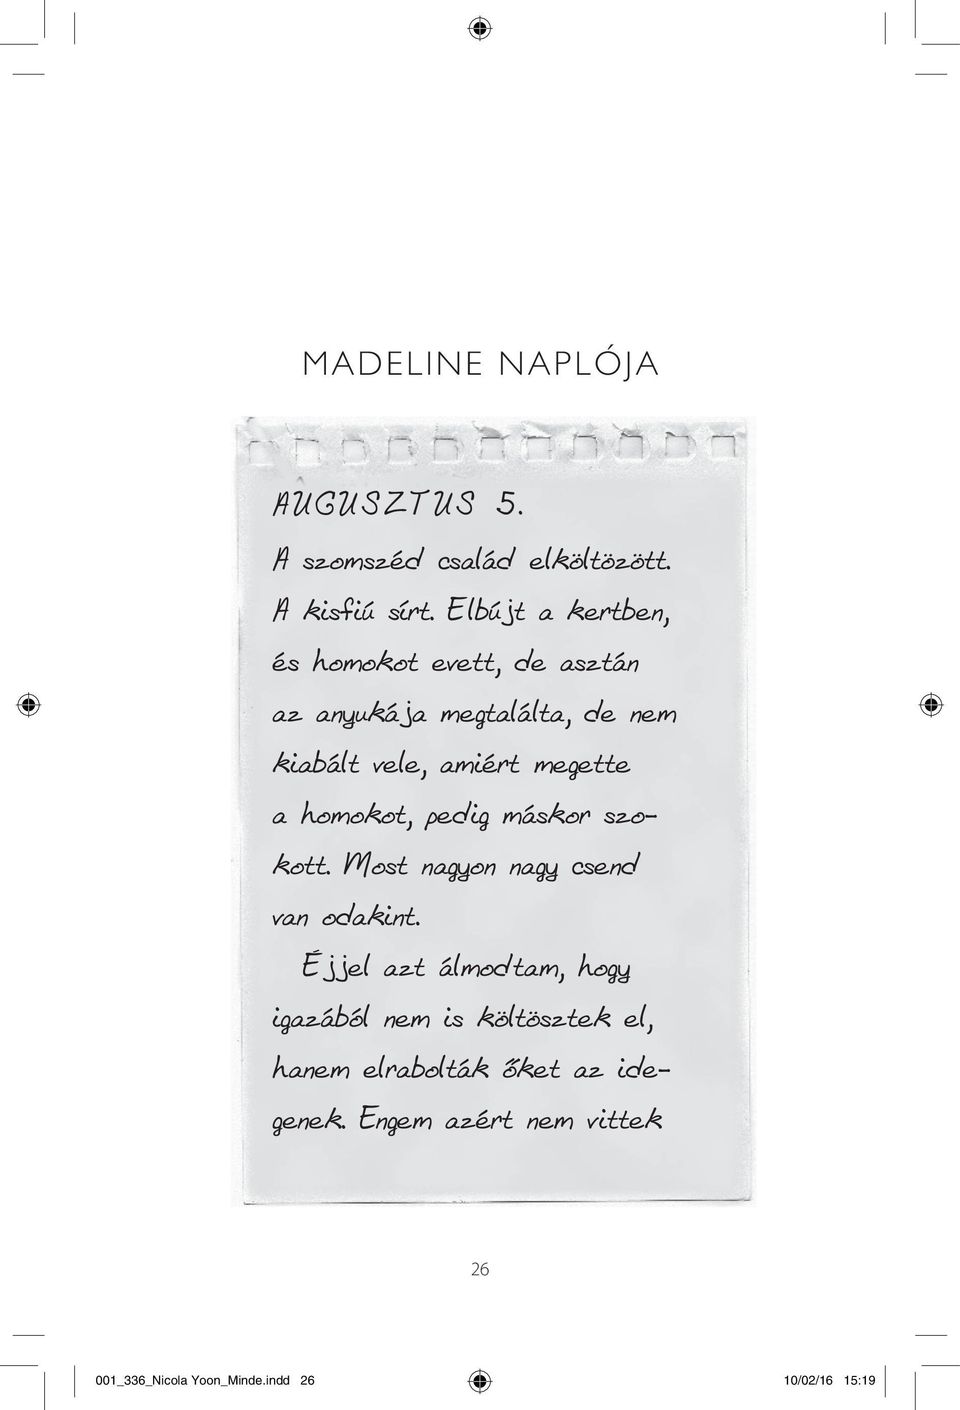 MADELINE NAPLÓJA
AUGUSZTUS 5.
A szomszéd család elköltözött.
A kisfiú sírt. Elbújt a kertben,
és homokot evett, de asztán
az anyukája megtalálta, de nem
kiabált vele, amiért megette
a homokot, pedig máskor szo-
kott. Most nagyon nagy csend
van odakint.
Éjjel azt álmodtam, hogy
igazából nem is költösztek el,
hanem elrabolták őket az ide-
genek. Engem azért nem vittek
26
001_336_Nicola Yoon_Minde.indd 26
10/02/16 15:19